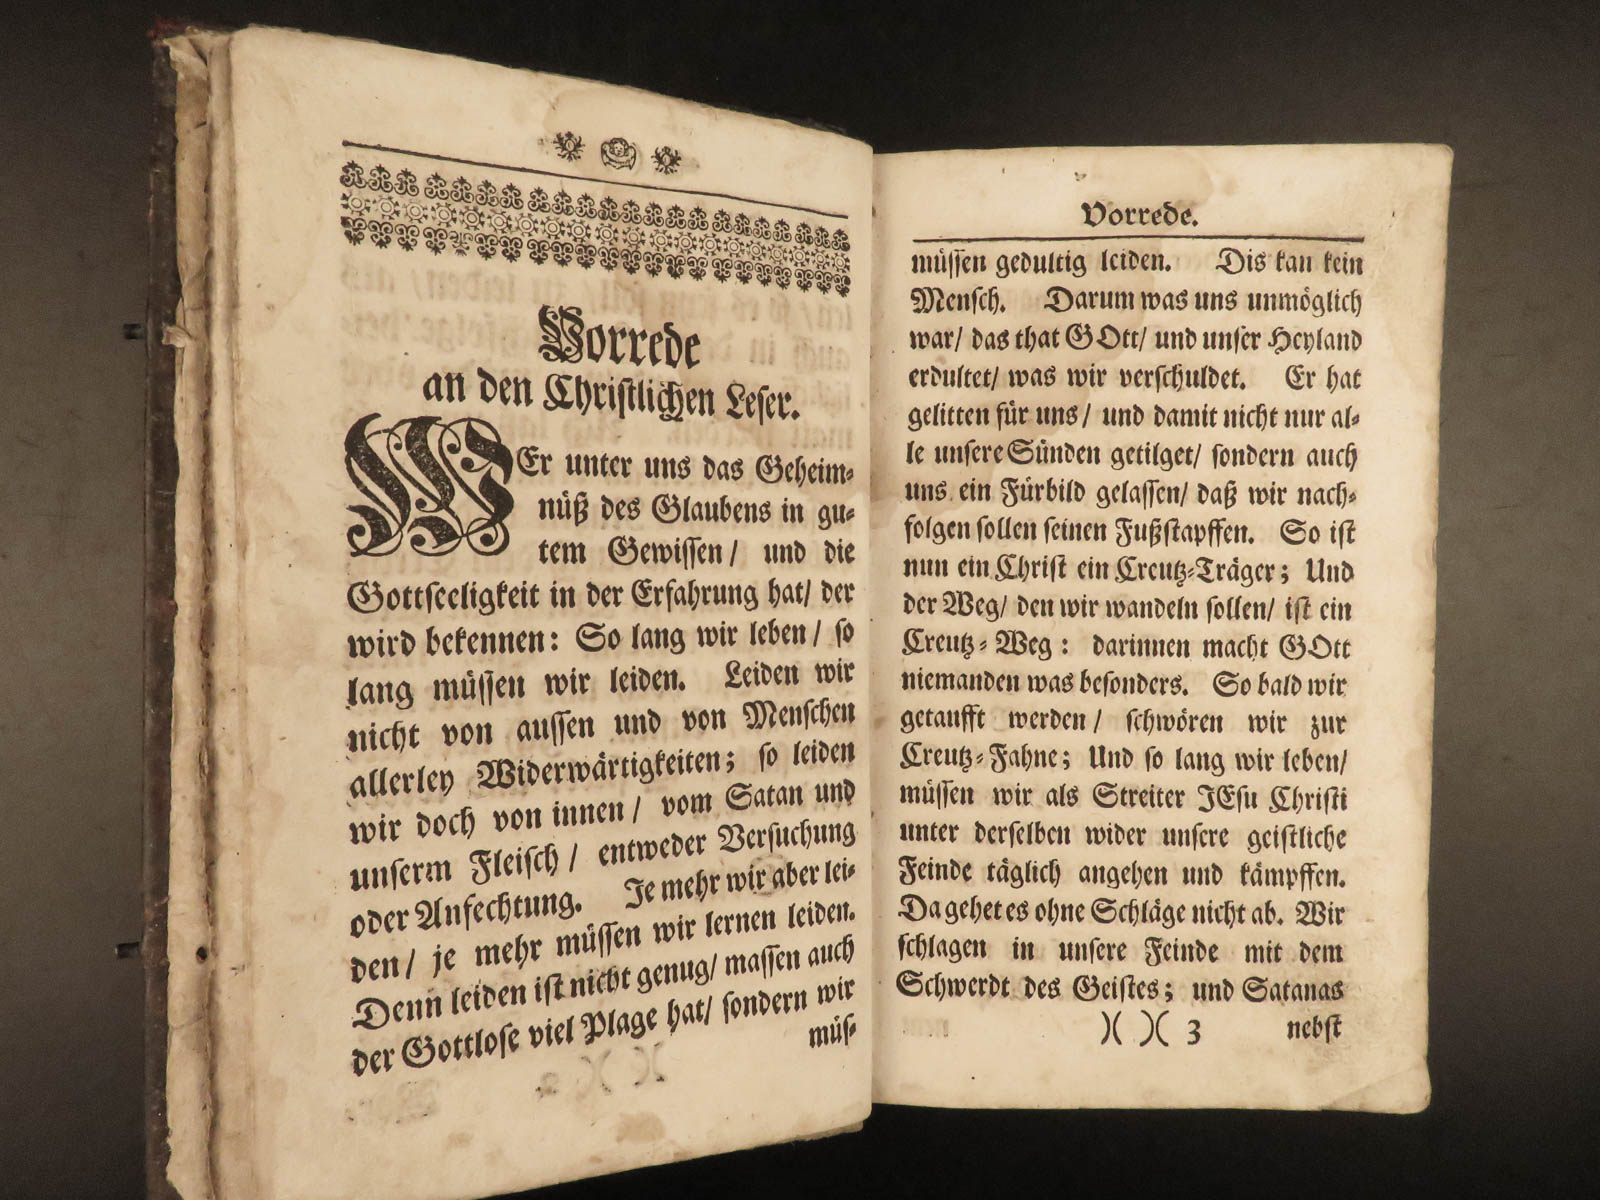 Vorrede
an den Christlichen Leser.
WEr unter uns das Geheim-
nüß des Glaubens in gu-
tem Gewissen/ und die
Gottseeligkeit in der Erfahrung hat/ der
wird bekennen: So lang wir leben/ so
lang müssen wir leiden. Leiden wir
nicht von aussen und von Menschen
allerley Widerwärtigkeiten; so leiden
wir doch von innen/ vom Satan und
unserm Fleisch/ entweder Versuchung
oder Anfechtung. Je mehr wir aber lei-
den/ je mehr müssen wir lernen leiden.
Denn leiden ist nicht genug/ massen auch
der Gottlose viel Plage hat/ sondern wir
müs-
Vorrede.
müssen gedultig leiden. Dis kan kein
Mensch. Darum was uns unmöglich
war/ das that GOtt/ und unser Heyland
erdultet/ was wir verschuldet. Er hat
gelitten für uns/ und damit nicht nur al-
le unsere Sünden getilget/ sondern auch
uns ein Fürbild gelassen/ daß wir nach-
folgen sollen seinen Fußstapffen. So ist
nun ein Christ ein Creutz-Träger; Und
der Weg/ den wir wandeln sollen/ ist ein
Creutz-Weg: darinnen macht GOtt
niemanden was besonders. So bald wir
getaufft werden/ schwören wir zur
Creutz-Fahne; Und so lang wir leben/
müssen wir als Streiter JEsu Christi
unter derselben wider unsere geistliche
Feinde täglich angehen und kämpffen.
Da gehet es ohne Schläge nicht ab. Wir
schlagen in unsere Feinde mit dem
Schwerdt des Geistes; und Satanas
)( )( 3 nebst